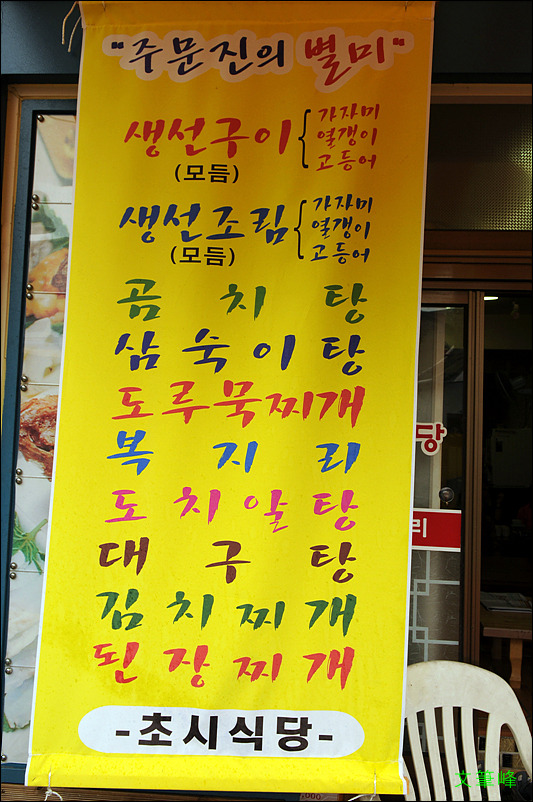 "주문진의 별미"
생선구이 { 가자미
열갱이
고등어
(모듬)
생선조림 { 가자미
열갱이
고등어
(모듬)
곰치탕
삼숙이탕
도루묵찌개
복지리
도치알탕
대구탕
김치찌개
된장찌개
-초시식당-
당
리
文筆峰